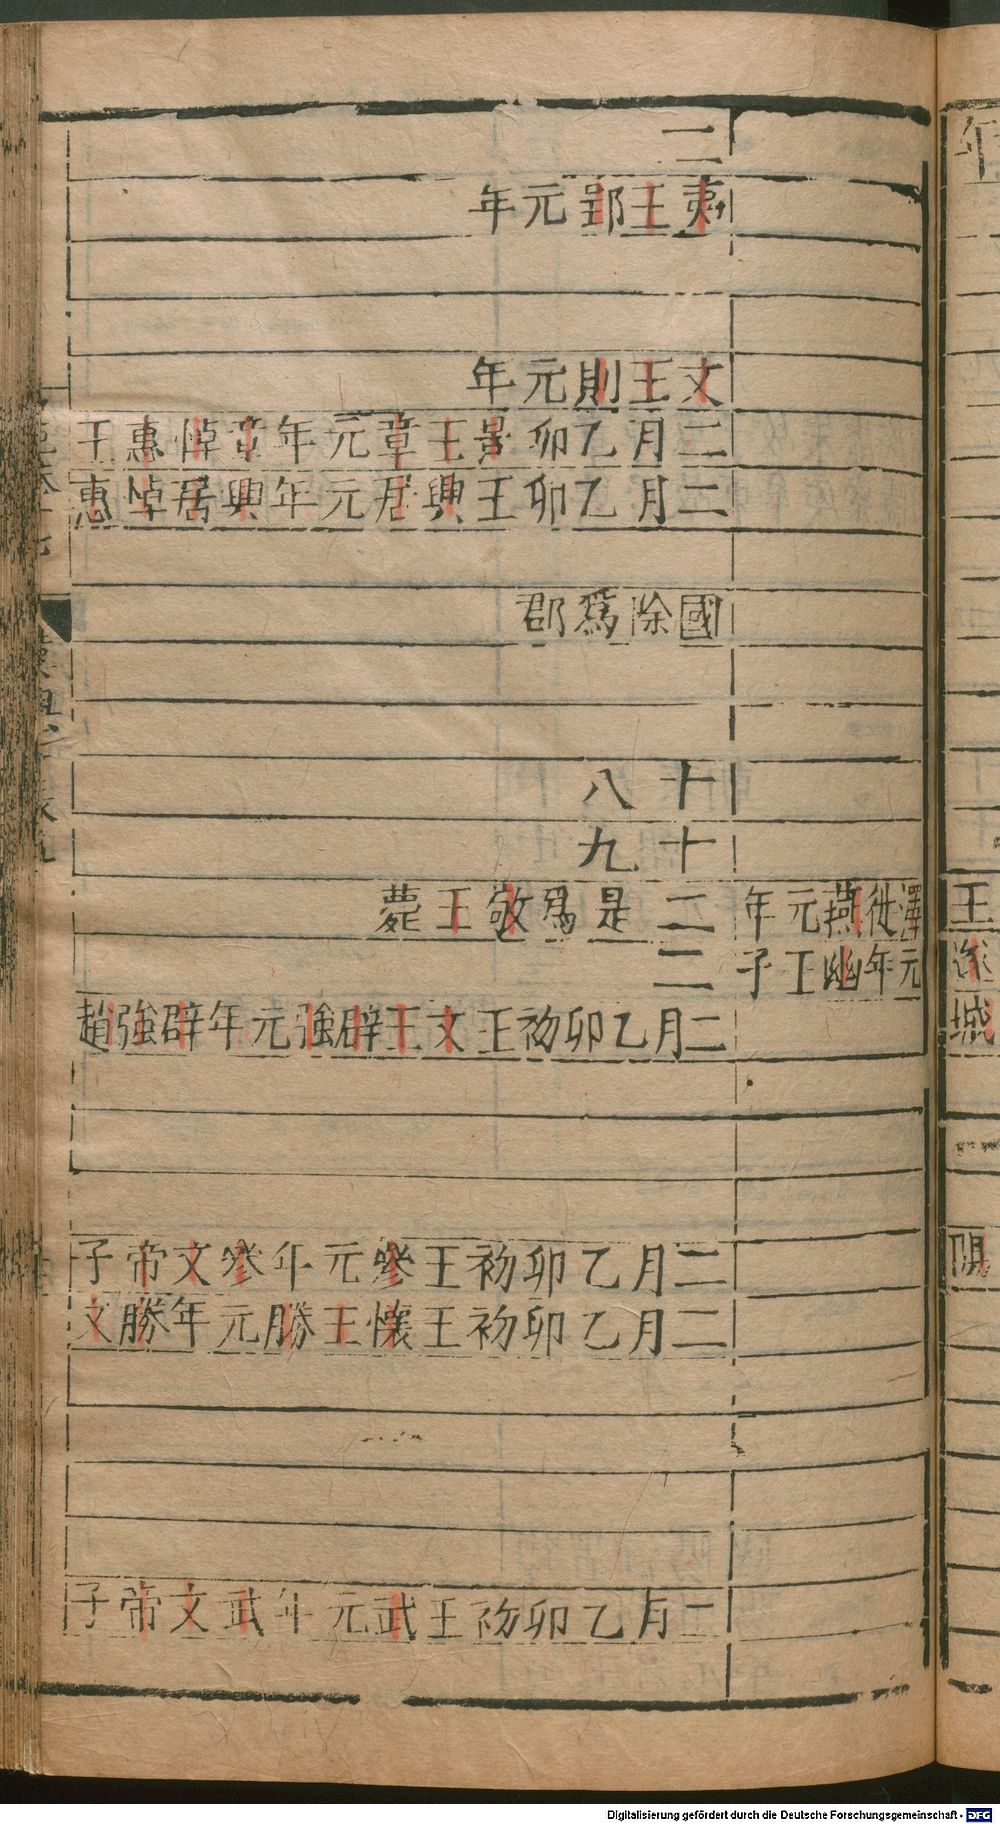 年
王
遂
城
澤徙燕元年
元年幽王子
二
夷王郢元年
文王則元年
二月乙卯景王章元年章悼惠王
二月乙卯王興居元年興居悼惠
國除爲郡
十八
十九
二是爲敬王薨
二
二月乙卯初王文王辟強元年辟強趙
二月乙卯初王參元年參文帝子
二月乙卯初王懷王勝元年勝文
二月乙卯初王武元年武文帝子
Digitalisierung gefördert durch die Deutsche Forschungsgemeinschaft - DFG